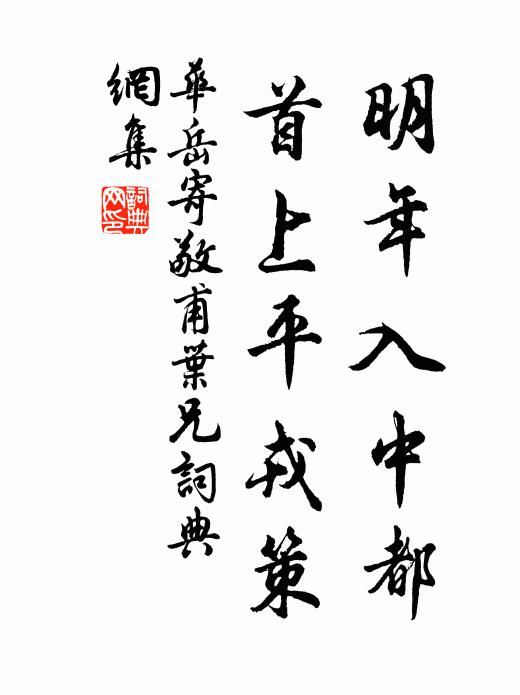 明年入中都
首上平戎策
華岳寄敬甫葉兄詞典
網集
詞典
网印